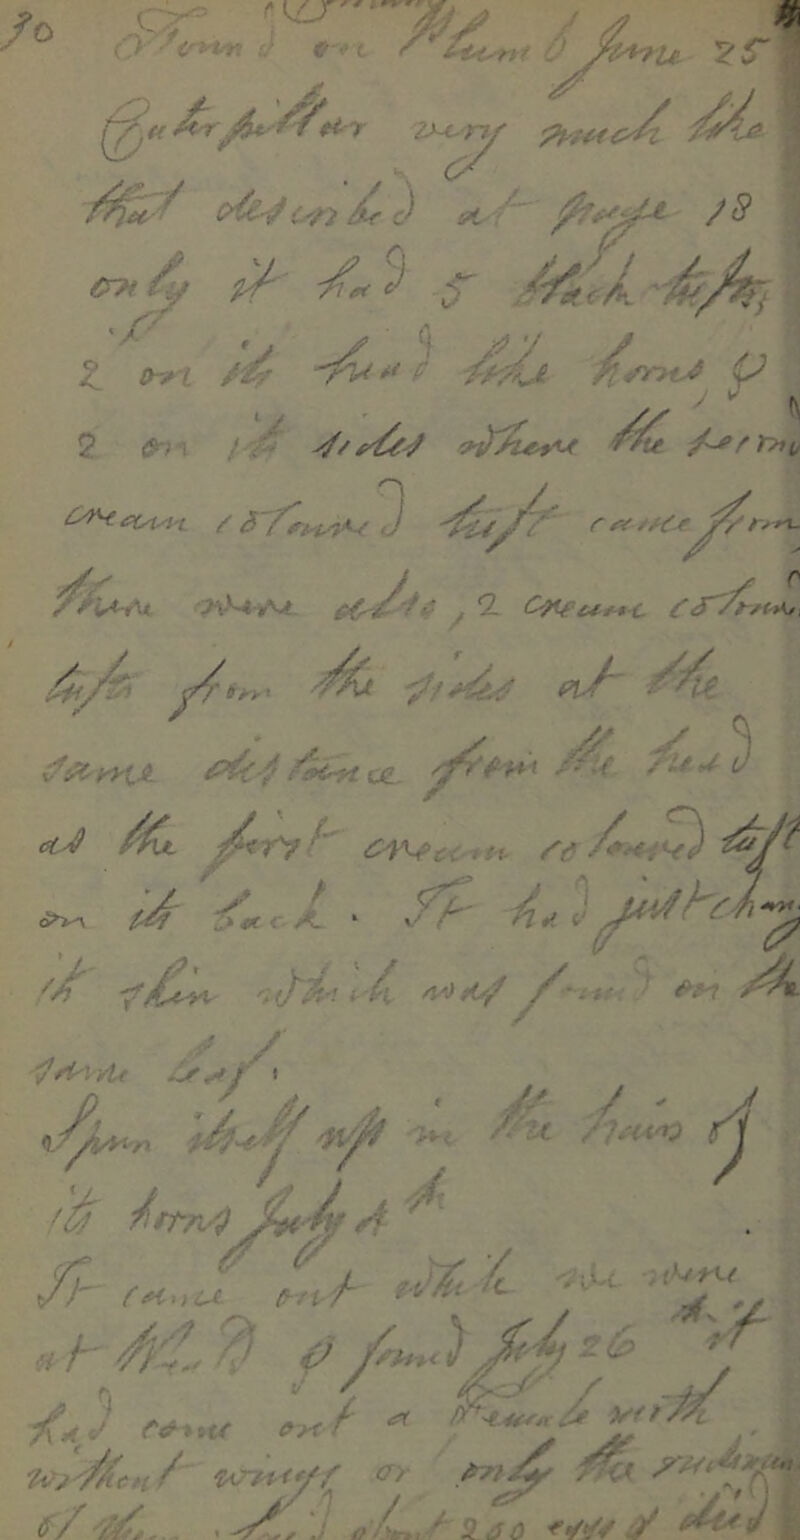 30
Found on Plum 6 June 25
Caterpillar very much like
that described at page 18
only it had 5 black tufts
2 on its head like horns &
2 on its sides where the
cream coloured tuft came from
there were also, 2 cream colour
tufts from the sides at the
same distance from the head
as the first cream coloured tuft
on its back. It had just chang
its skin which was found on the
same leaf.
Spun itself up in the hairs of
its horns July 4th
It came out while we were
at & found July 26th it
had come out a female moth
without wings or only the rudimen
of 250 eggs & died